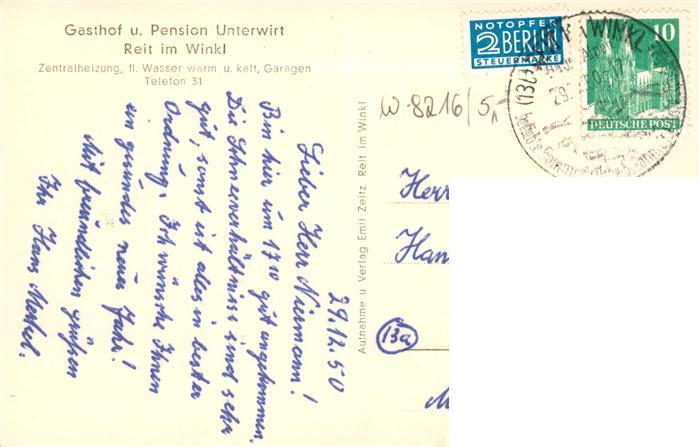 Gasthof u. Pension Unterwirt
Reit im Winkl
Zentralheizung, fl. Wasser warm u. kalt, Garagen
Telefon 31
NOTOPFER
2 BERLIN
STEUERMARKE
10
DEUTSCHE POST
(13b) REIT I. WINKL
29.
W-8216/5,-
29.12.50
Lieber Herr Niermann!
Bin hier um 17 10 gut angekommen.
Die Schneeverhältnisse sind sehr
gut, sonst ist alles in bester
Ordnung. Ich wünsche Ihnen
ein gesundes neues Jahr!
Mit freundlichen Grüßen
Ihr Hans Merkel.
Aufnahme u Verlag Emil Zeitz Reit im Winkl
Herr
Han
13a